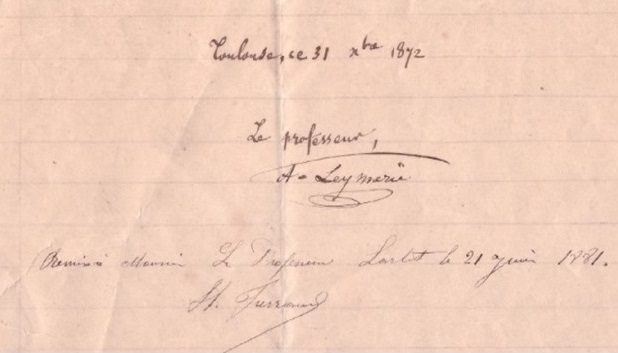 Toulouse, ce 31 xbre 1872
Le professeur,
A. Leymerie
Remis à Monsieur Le Professeur Lartet le 21 juin 1881.